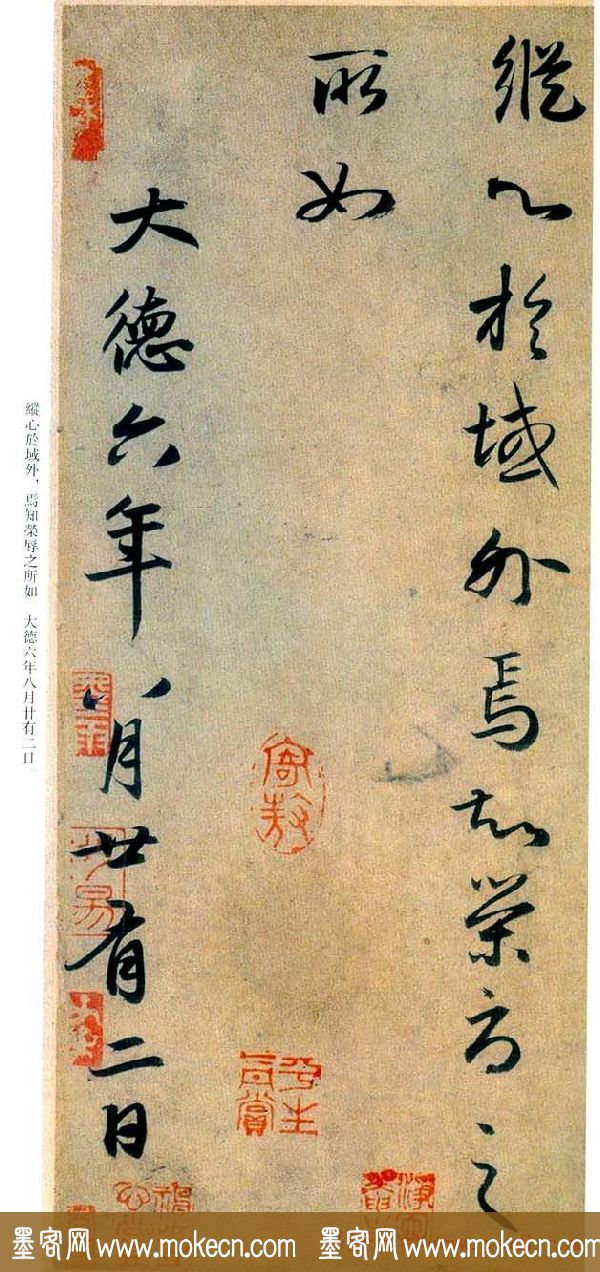 縱心於域外焉知榮辱之
所如
大德六年八月廿有二日
縱心於域外，焉知榮辱之所如　大德六年八月廿有二日
墨客网 www.mokecn.com 墨客网 www.mokecn.com